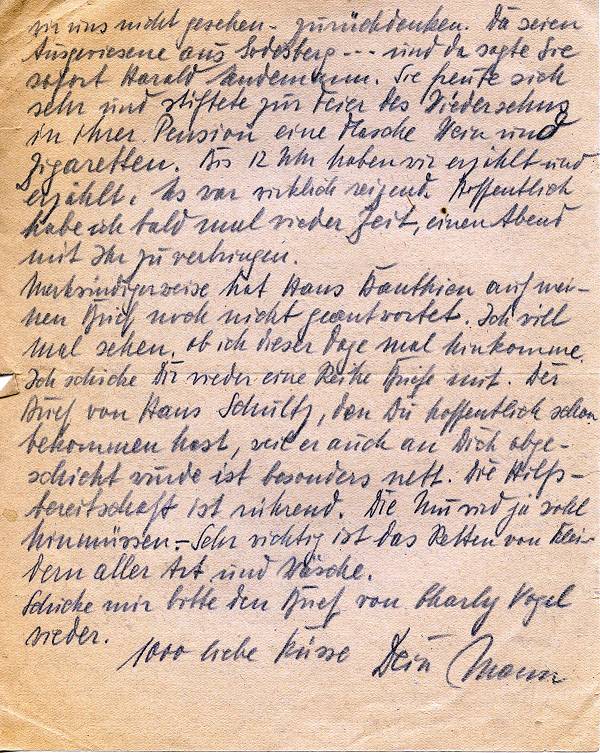 wir uns nicht gesehen - zurückdenken. Da seien
Ausgewiesene aus Godesberg --- und da sagte Sie
sofort Harald Lindemann. Sie freute sich
sehr und stiftete zur Feier des Wiedersehns
in ihrer Pension eine Flasche Wein und
Zigaretten. Bis 12 Uhr haben wir erzählt und
erzählt. Es war wirklich reizend. Hoffentlich
habe ich bald mal wieder Zeit, einen Abend
mit Ihr zu verbringen.
Merkwürdigerweise hat Hans auf mei-
nen Brief noch nicht geantwortet. Ich will
mal sehen, ob ich dieser Tage mal hinkomme.
Ich schicke Dir wieder eine Reihe Briefe mit. Der
Brief von Hans Schultz, den Du hoffentlich schon
bekommen hast, weil er auch an Dich abge-
schickt wurde ist besonders nett. Die Hilfs-
bereitschaft ist rührend. Die wird ja wohl
hinmüssen. - Sehr richtig ist das Retten von Klei-
dern aller Art und Wäsche.
Schicke mir bitte den Brief von Charly Vogel
wieder.
1000 liebe Küsse Dein Mann